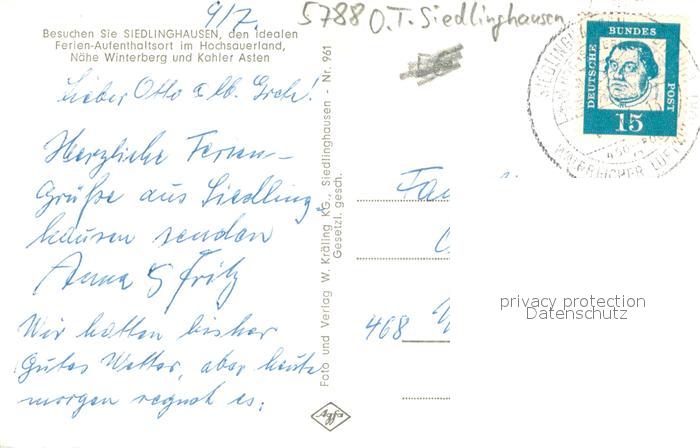 9/7.
5788 O.T. Siedlinghausen
Besuchen Sie SIEDLINGHAUSEN, den idealen
Ferien-Aufenthaltsort im Hochsauerland,
Nähe Winterberg und Kahler Asten
Lieber Otto u. lb. Grete!
Herzliche Ferien-
Grüße aus Siedling-
hausen senden
Anna & Fritz
Wir hatten bisher
Gutes Wetter, aber heute
morgen regnet es.
Foto und Verlag W. Kräling KG., Siedlinghausen - Nr. 961
Gesetzl. gesch.
Agfa
DEUTSCHE
BUNDES
POST
15
SIEDLINGHAUSEN
Fam
468
privacy protection
Datenschutz